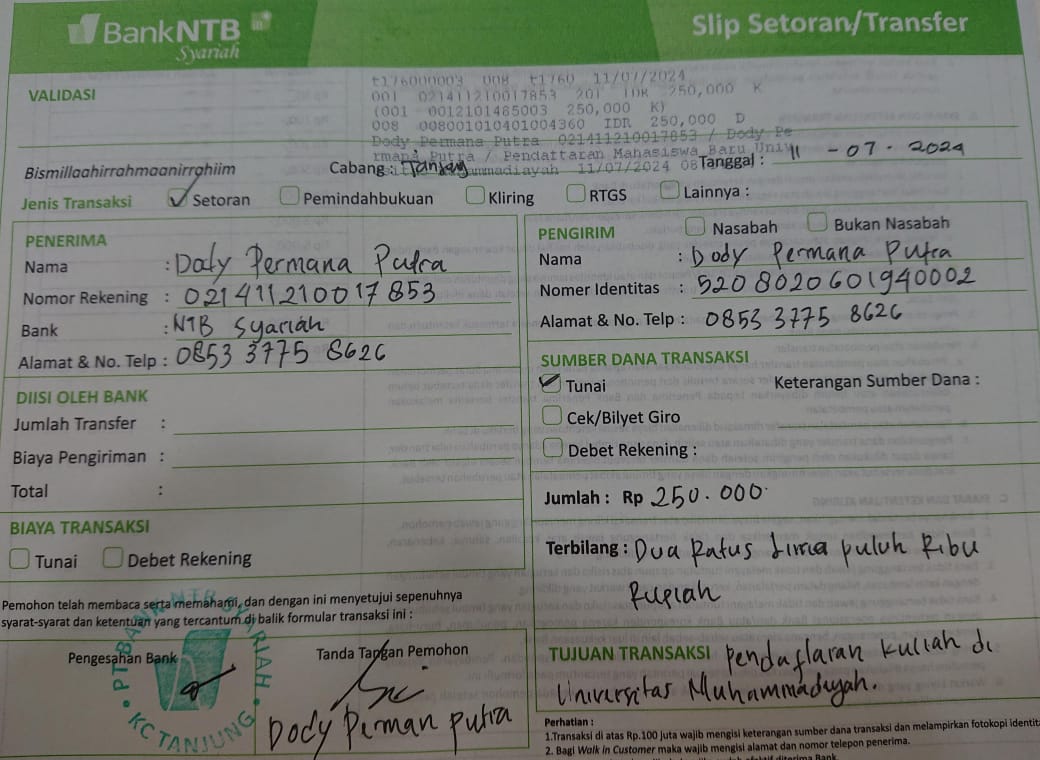 BankNTB
Syariah
Slip Setoran/Transfer
VALIDASI
t176000003 008 t1760 11/07/2024
001 021411210017853 201 IDR 250,000 K
(001 0012101485003 250,000 K)
008 008001010401004360 IDR 250,000 D
Dody Permana Putra 021411210017853 / Dody Pe
rmana Putra / Pendaftaran Mahasiswa Baru Univ
11/07/2024 08
Bismillaahirrahmaanirrahiim
Cabang : Tanjung
Tanggal : 11 - 07 - 2024
Jenis Transaksi Setoran Pemindahbukuan Kliring RTGS Lainnya :
PENERIMA
Nama : Dody Permana Putra
Nomor Rekening : 021411210017853
Bank : NTB Syariah
Alamat & No. Telp : 0853 3775 8626
DIISI OLEH BANK
Jumlah Transfer :
Biaya Pengiriman :
Total :
BIAYA TRANSAKSI
Tunai Debet Rekening
Pemohon telah membaca serta memahami, dan dengan ini menyetujui sepenuhnya
syarat-syarat dan ketentuan yang tercantum di balik formular transaksi ini :
Pengesahan Bank
Tanda Tangan Pemohon
PT BANK NTB SYARIAH
KC TANJUNG
Dody Perman putra
PENGIRIM Nasabah Bukan Nasabah
Nama : Dody Permana Putra
Nomer Identitas : 5208020601940002
Alamat & No. Telp : 0853 3775 8626
SUMBER DANA TRANSAKSI
Tunai Keterangan Sumber Dana :
Cek/Bilyet Giro
Debet Rekening :
Jumlah : Rp 250.000
Terbilang : Dua Ratus Lima puluh Ribu
Rupiah
TUJUAN TRANSAKSI pendaftaran kuliah di
Universitas Muhammadiyah.
Perhatian :
1.Transaksi di atas Rp.100 juta wajib mengisi keterangan sumber dana transaksi dan melampirkan fotokopi identit
2. Bagi Walk in Customer maka wajib mengisi alamat dan nomor telepon penerima.